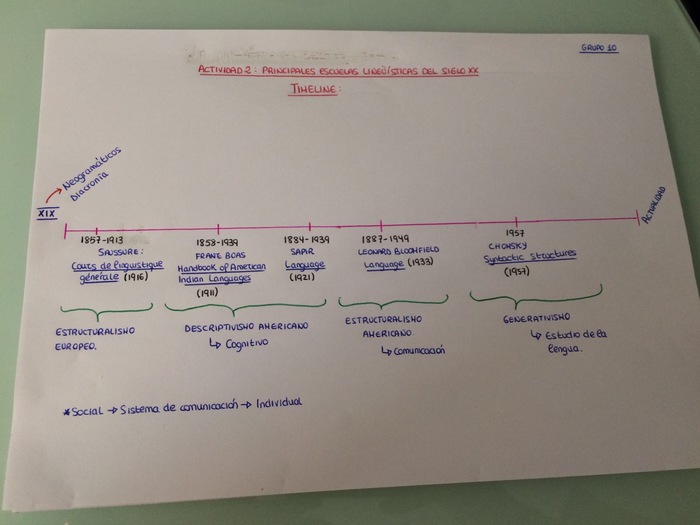 GRUPO 10
ACTIVIDAD 2: PRINCIPALES ESCUELAS LINGÜÍSTICAS DEL SIGLO XX
TIMELINE:
Neogramáticos
Diacronía
XIX
ACTUALIDAD
1857-1913
SAUSSURE:
Cours de linguistique
générale (1916)
1858-1939
FRANK BOAS
Handbook of American
Indian Languages
(1911)
1884-1939
SAPIR
Language
(1921)
1887-1949
LEONARD BLOOMFIELD
Language (1933)
1957
CHOMSKY
Syntactic structures
(1957)
ESTRUCTURALISMO
EUROPEO.
DESCRIPTIVISMO AMERICANO
↳ Cognitivo
ESTRUCTURALISMO
AMERICANO.
↳ Comunicación
GENERATIVISMO
↳ Estudio de la
lengua.
*Social → Sistema de comunicación → Individual